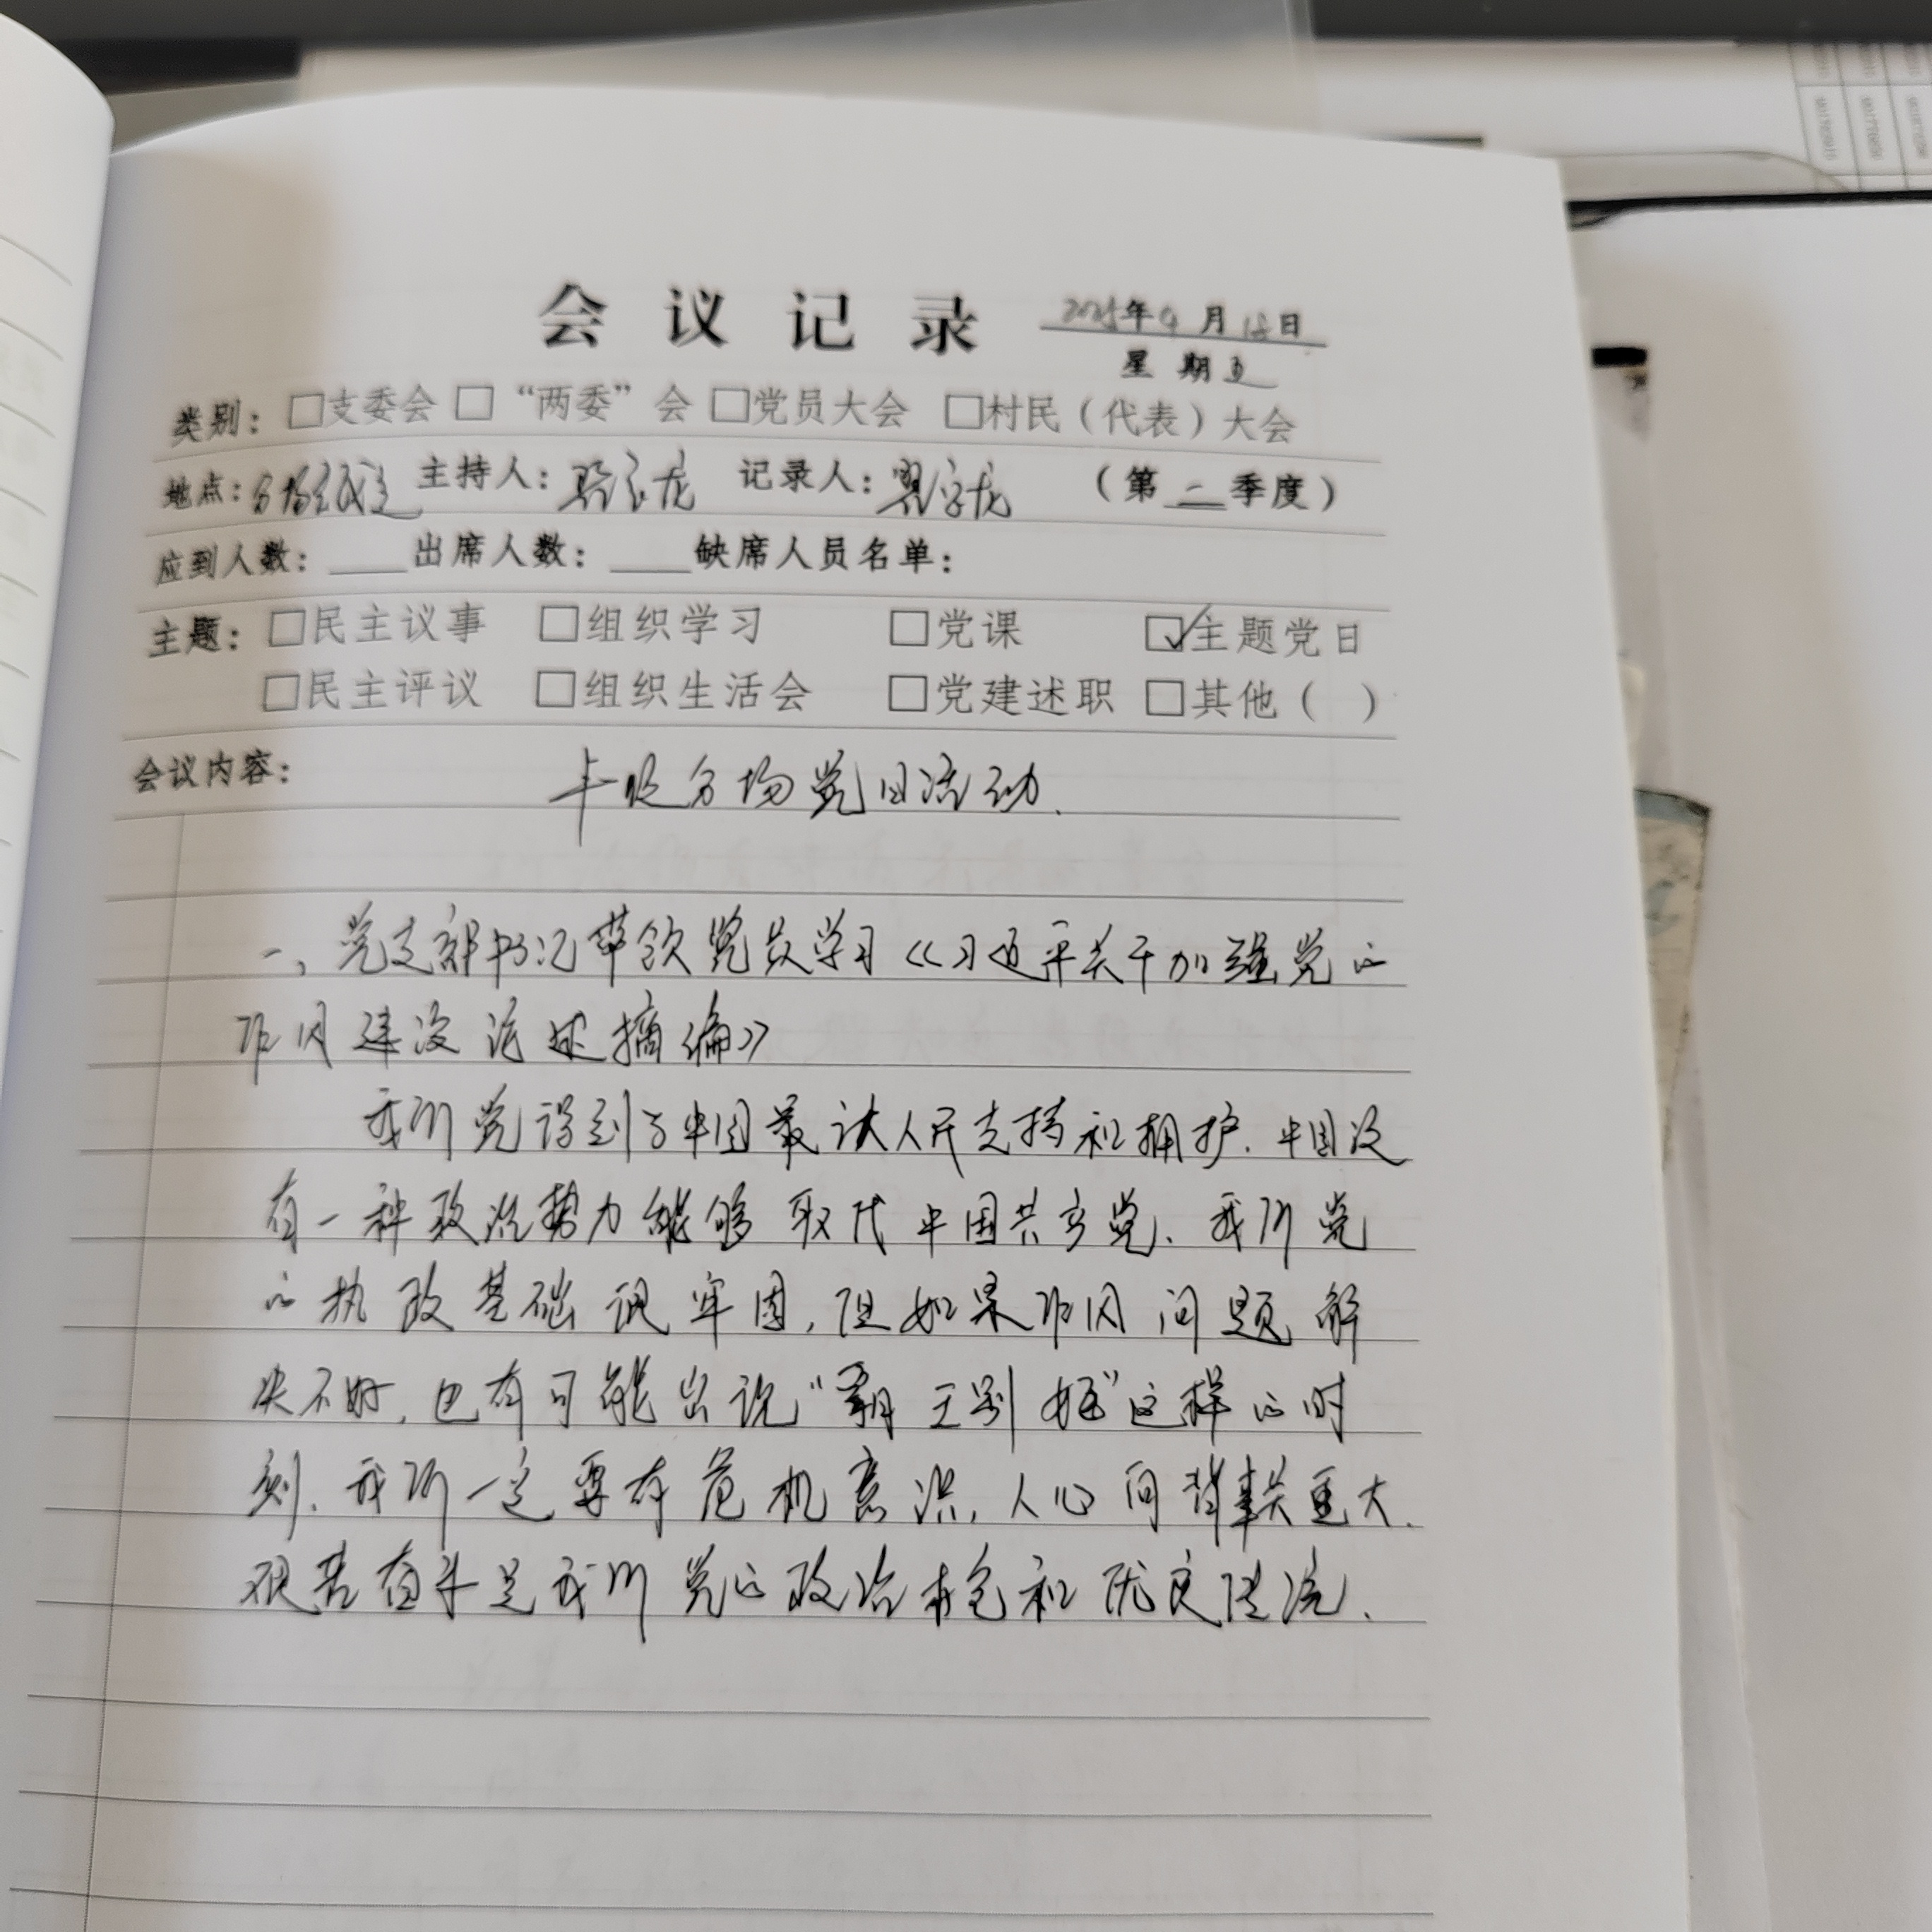 会议记录 2025年4月18日
星期五
类别：□支委会 □“两委”会 □党员大会 □村民（代表）大会
地点： 主持人： 记录人： （第二季度）
应到人数：____出席人数：____缺席人员名单：
主题：□民主议事 □组织学习 □党课 ☑主题党日
□民主评议 □组织生活会 □党建述职 □其他（ ）
会议内容： 分场党日活动.
一、党支部书记带领党员学习《习近平关于加强党的
作风建设论述摘编》
我们党得到了中国最大人民支持和拥护.中国没
有一种政治势力能够取代中国共产党.我们党
的执政基础很牢固,但如果作风问题解
决不好,也有可能出现“霸王别姬”这样的时
刻.我们一定要有危机意识,人心向背事关重大.
艰苦奋斗是我们党的政治本色和优良传统.